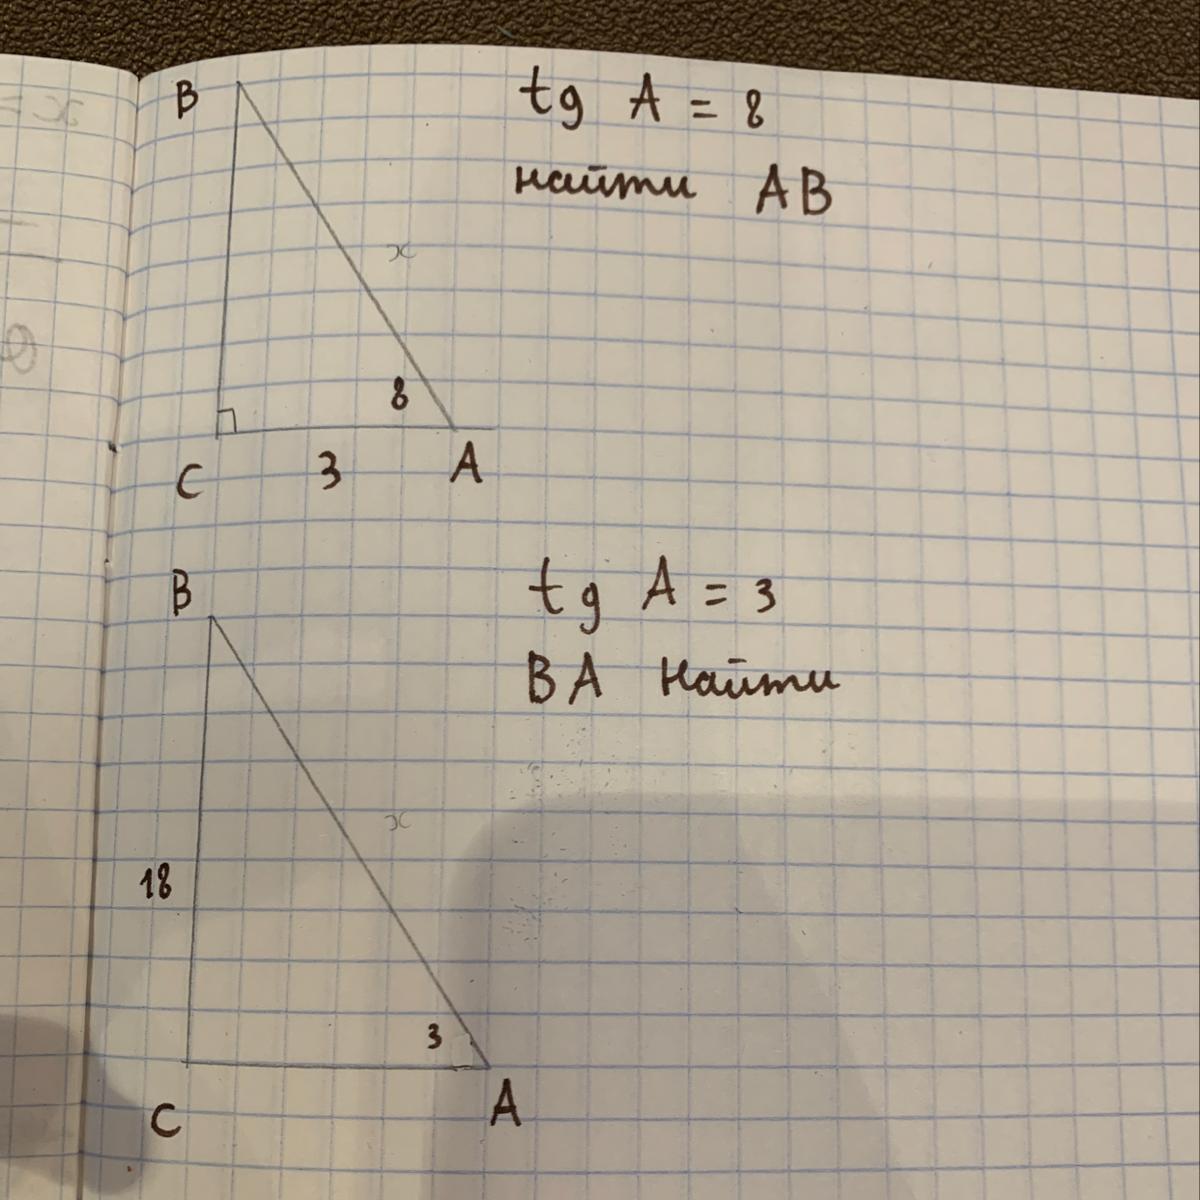 B
tg A = 8
найти AB
x
8
C 3 A
B
tg A = 3
BA найти
x
18
3
C A